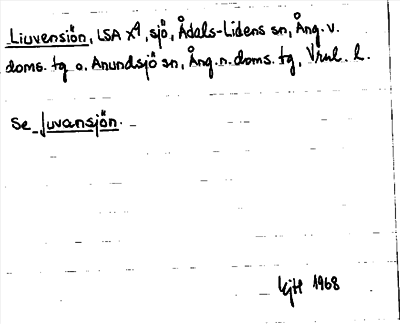 Liuvensiön, LSA X4, sjö, Ådals-Lidens sn, Ång. v.
doms. tg o. Anundsjö sn, Ång. n. doms. tg, Vrul. l.
Se Juvansjön.
1968